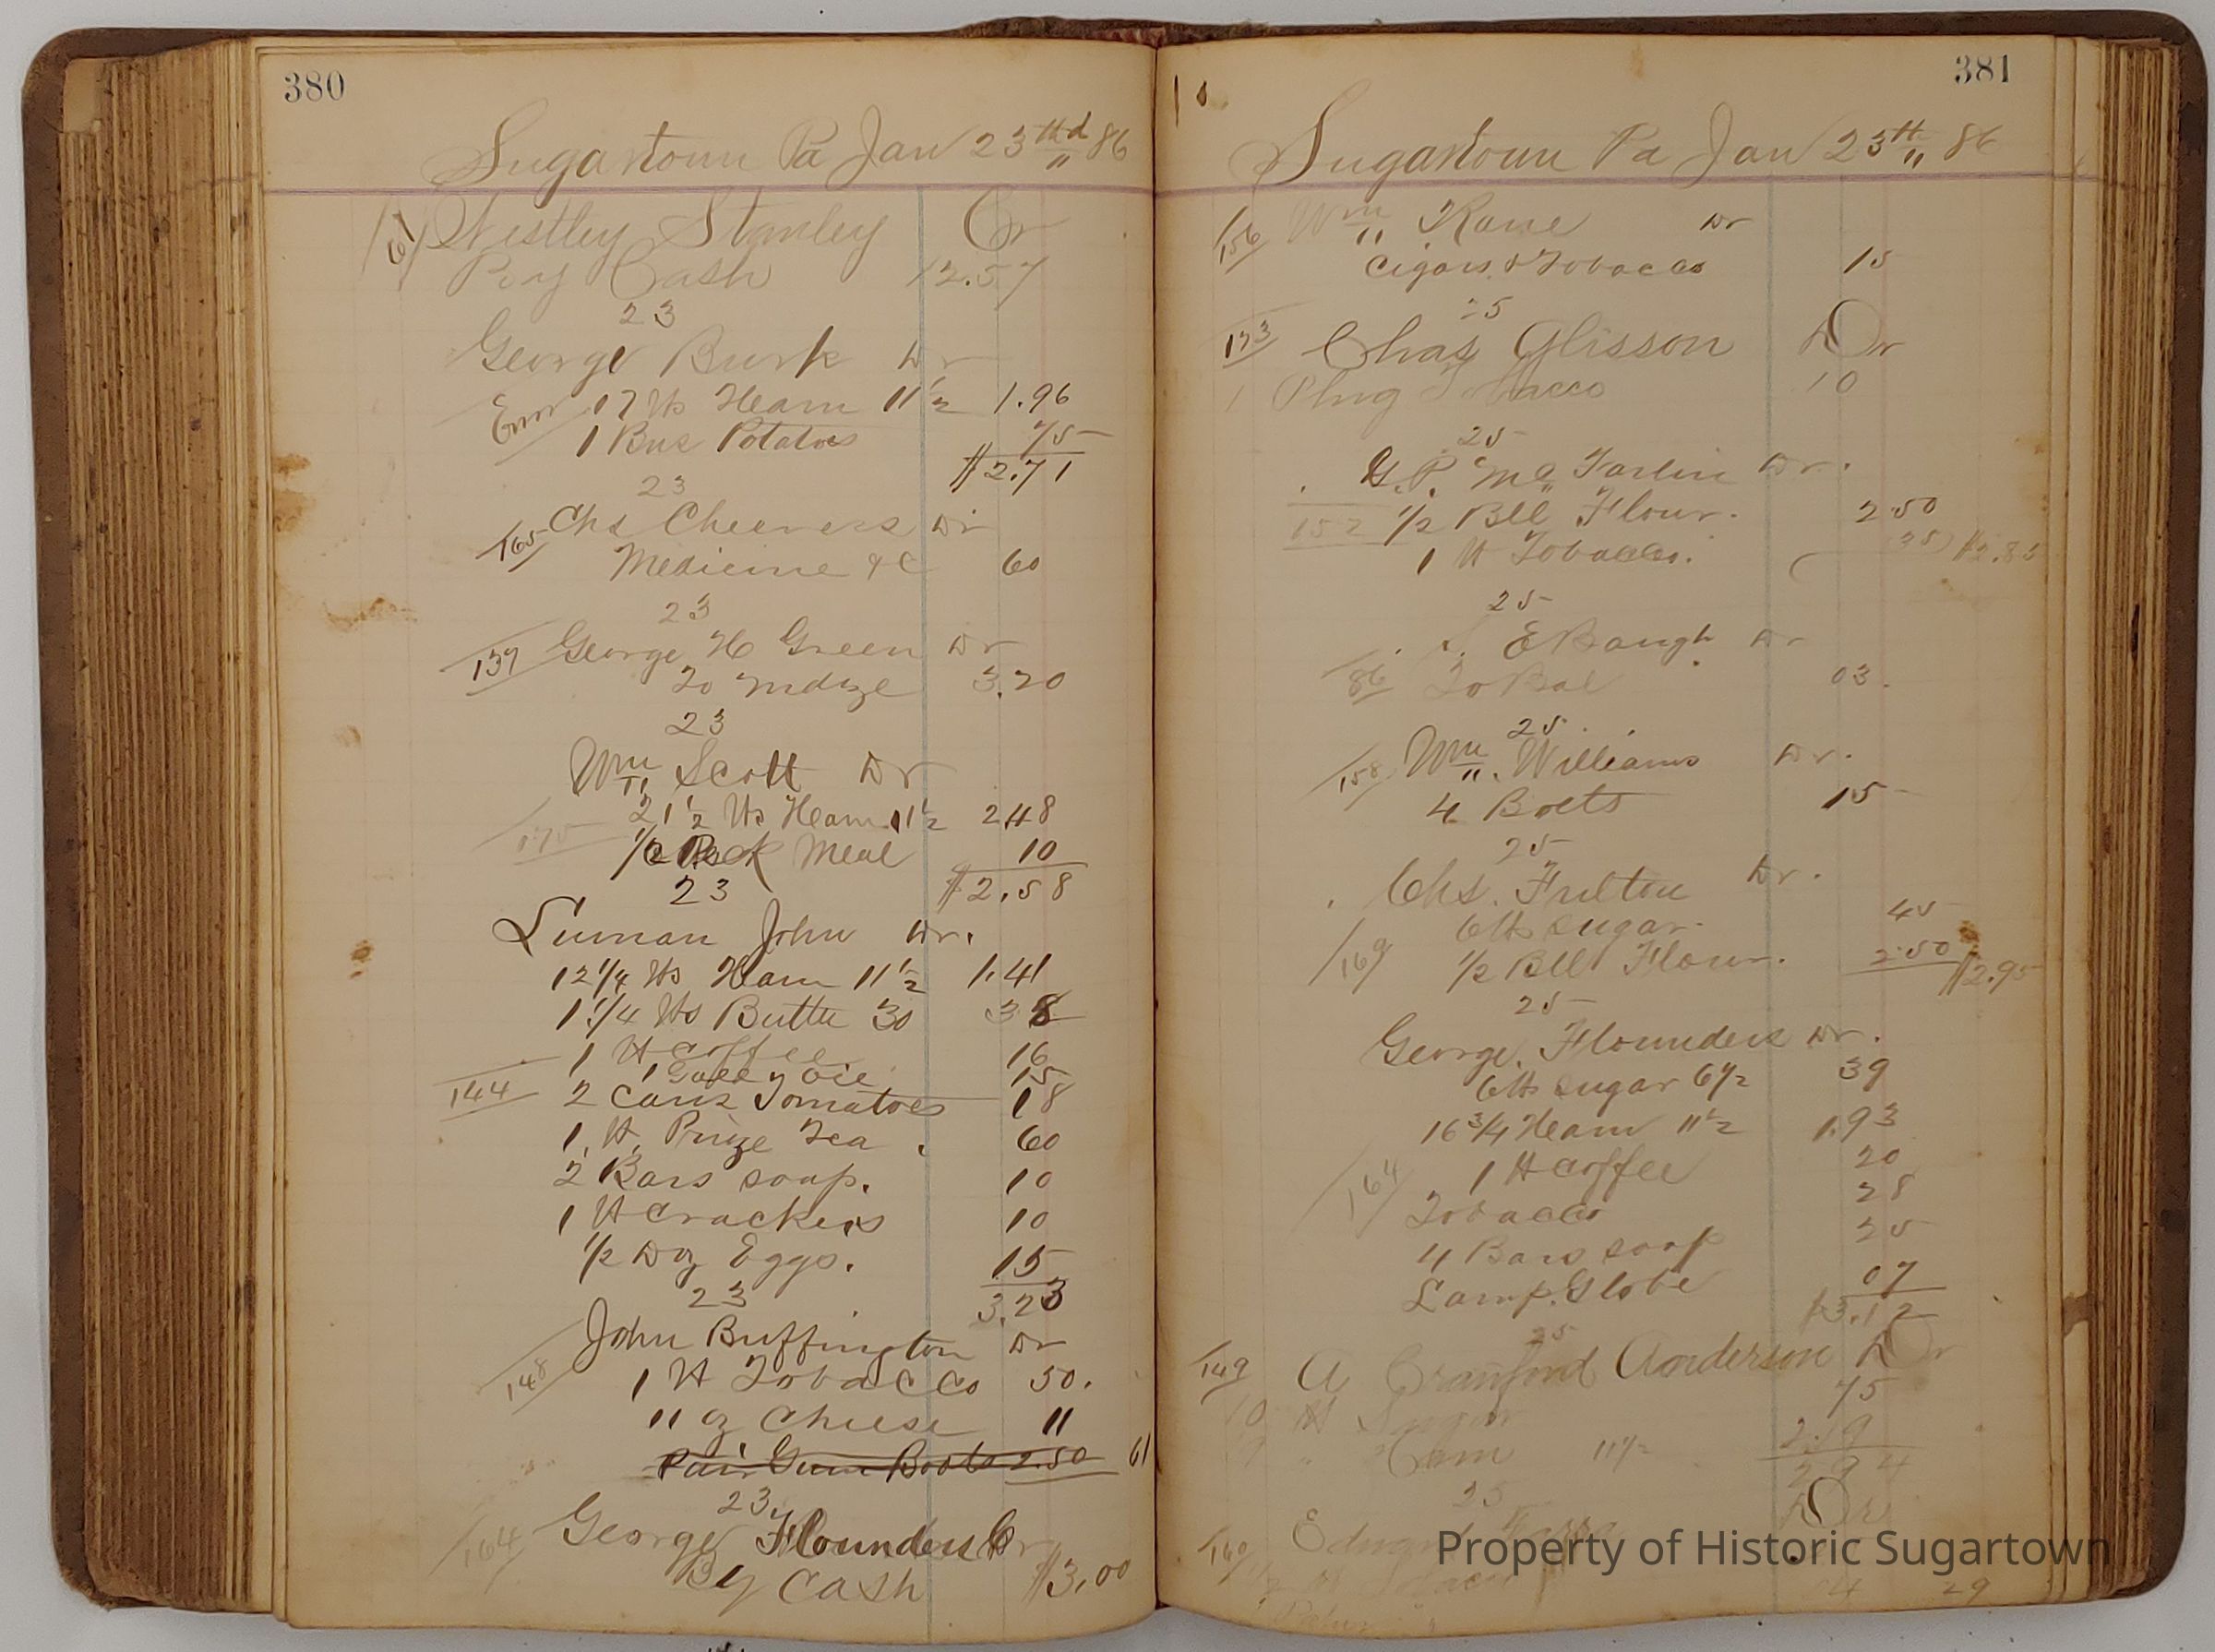 380
Sugartown Pa Jan 23rd 86
61 Westley Stanley Cr
By Cash 12.57
23
George Burk Dr
Error 17 lbs Ham 11 1/2 1.96
1 Bus Potatoes 75
$2.71
23
165 Chs Cheevers Dr
Medicine &c 60
23
139 George H Green Dr
To mdze 3.20
23
Wm Scott Dr
21 1/2 lbs Ham 11 1/2 2.48
175 1/2 Peck Meal 10
23 $2.58
Luman John Dr.
12 1/4 lbs Ham 11 1/2 1.41
1 1/4 lbs Butter 30 38
1 lb Coffee 16
1 Gall Oil 15
144 2 Cans Tomatoes 18
1 lb Prize Tea 60
2 Bars soap. 10
1 lb Crackers 10
1/2 Doz Eggs. 15
23 3.23
John Buffington Dr
148 1 lb Tobacco 50.
11 oz Cheese 11
Pair Gum Boots 2.50 61
23
164 George Flounders Cr
By Cash $3.00
381
Sugartown Pa Jan 23th 86
156 Wm Kane Dr
Cigars & Tobacco 15
25
173 Chas Glisson Dr
1 Plug Tobacco 10
25
G.P. Mc Farlin Dr.
152 1/2 Bll Flour. 2.50
1 lb Tobacco. 35 $2.85
25
E Baugh Dr
86 To Bal 03.
25
158 Wm Williams Dr.
4 Bolts 15
25
Chs. Fulton Dr.
6 lbs sugar. 45
169 1/2 Bll Flour. 2.50 $2.95
25
George Flounders Dr.
6 lbs sugar 6 1/2 39
16 3/4 Ham 11 1/2 1.93
1 lb Coffee 20
164 Tobacco 28
4 Bars soap 25
Lamp Globe 07
$3.12
25
149 A Crawford Anderson Dr
10 lb Sugar 75
" Ham 11 1/2 2.19
2 94
25 Dr
160 Edward
29
Property of Historic Sugartown